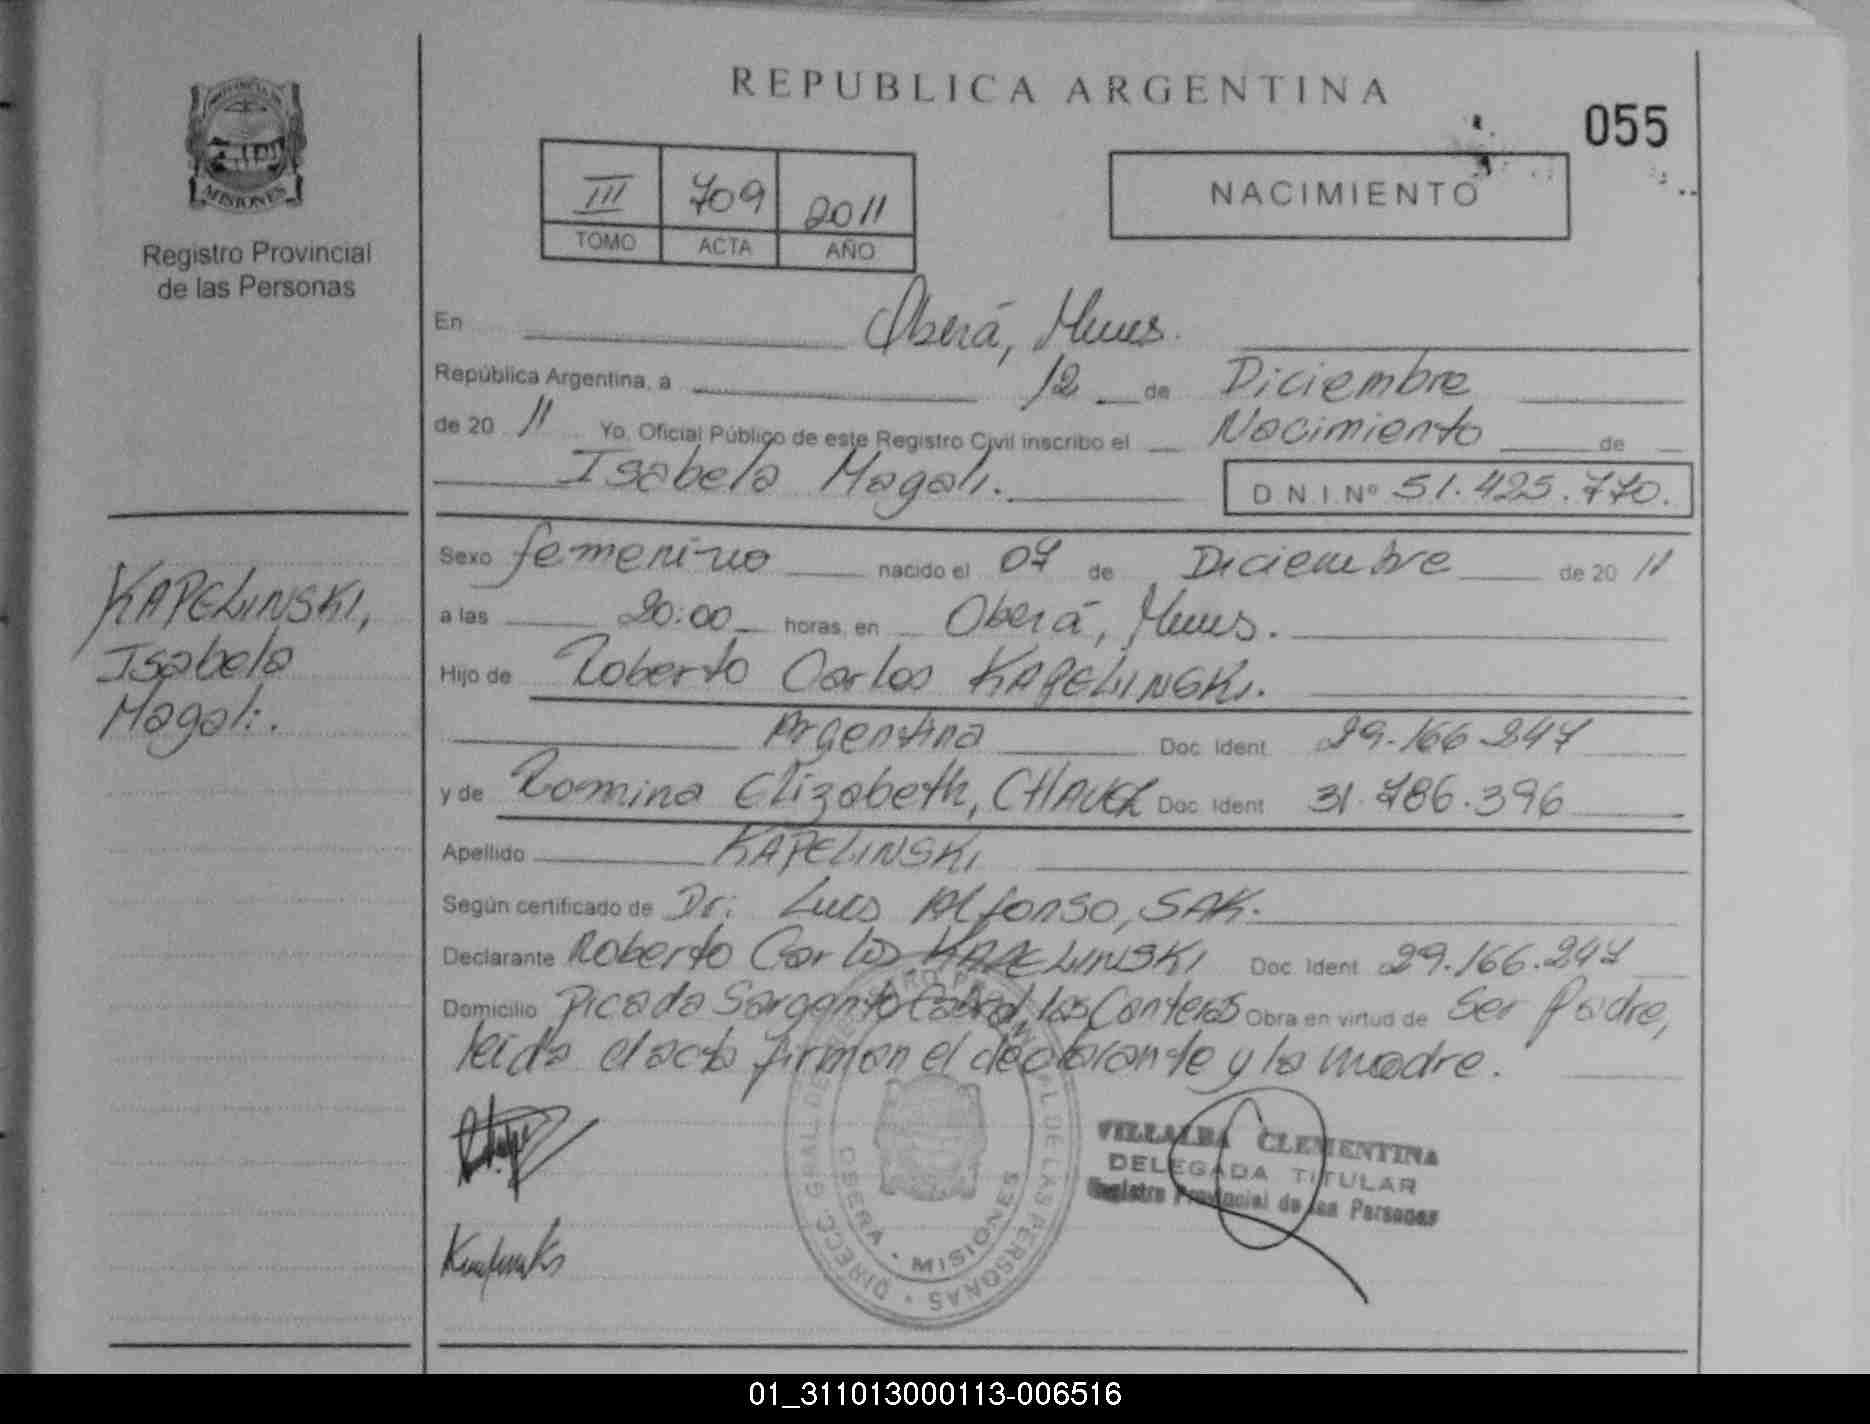 REPUBLICA ARGENTINA
055
MISIONES
Registro Provincial
de las Personas
III 709 2011
TOMO ACTA AÑO
NACIMIENTO
En Oberá, Mnes.
República Argentina, a 12 de Diciembre
de 20 11 Yo, Oficial Público de este Registro Civil inscribo el Nacimiento de
Isabela Magali. D.N.I. Nº 51.425.770.
KAPELINSKI,
Isabela
Magali.
Sexo femenino nacido el 07 de Diciembre de 20 11
a las 20:00 horas, en Oberá, Mnes.
Hijo de Roberto Carlos KAPELINSKI.
Argentina Doc. Ident. 29.166.247
y de Romina Elizabeth, CHAVEZ Doc. Ident. 31.786.396
Apellido KAPELINSKI
Según certificado de Dr: Luis Alfonso, SAK.
Declarante Roberto Carlos KAPELINSKI Doc. Ident. 29.166.247
Domicilio Picada Sargento Cabral, Los Canteros Obra en virtud de Ser Padre,
leída el acta firman el declarante y la madre.
VILLALBA CLEMENTINA
DELEGADA TITULAR
Registro Provincial de las Personas
DIRECC. GRAL. DE REGISTRO PROVINCIAL DE LAS PERSONAS
OBERA - MISIONES
01_311013000113-006516